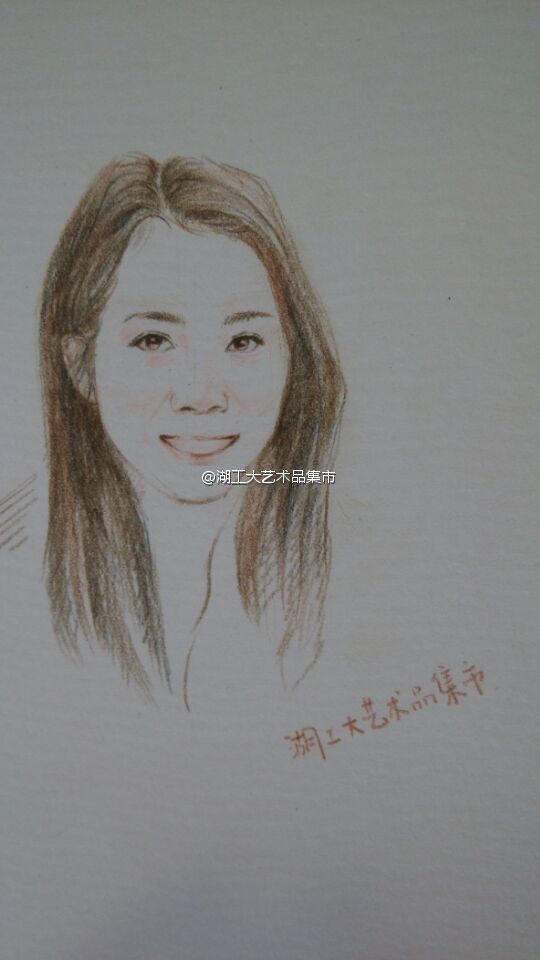 @湖工大艺术品集市
湖工大艺术品集市